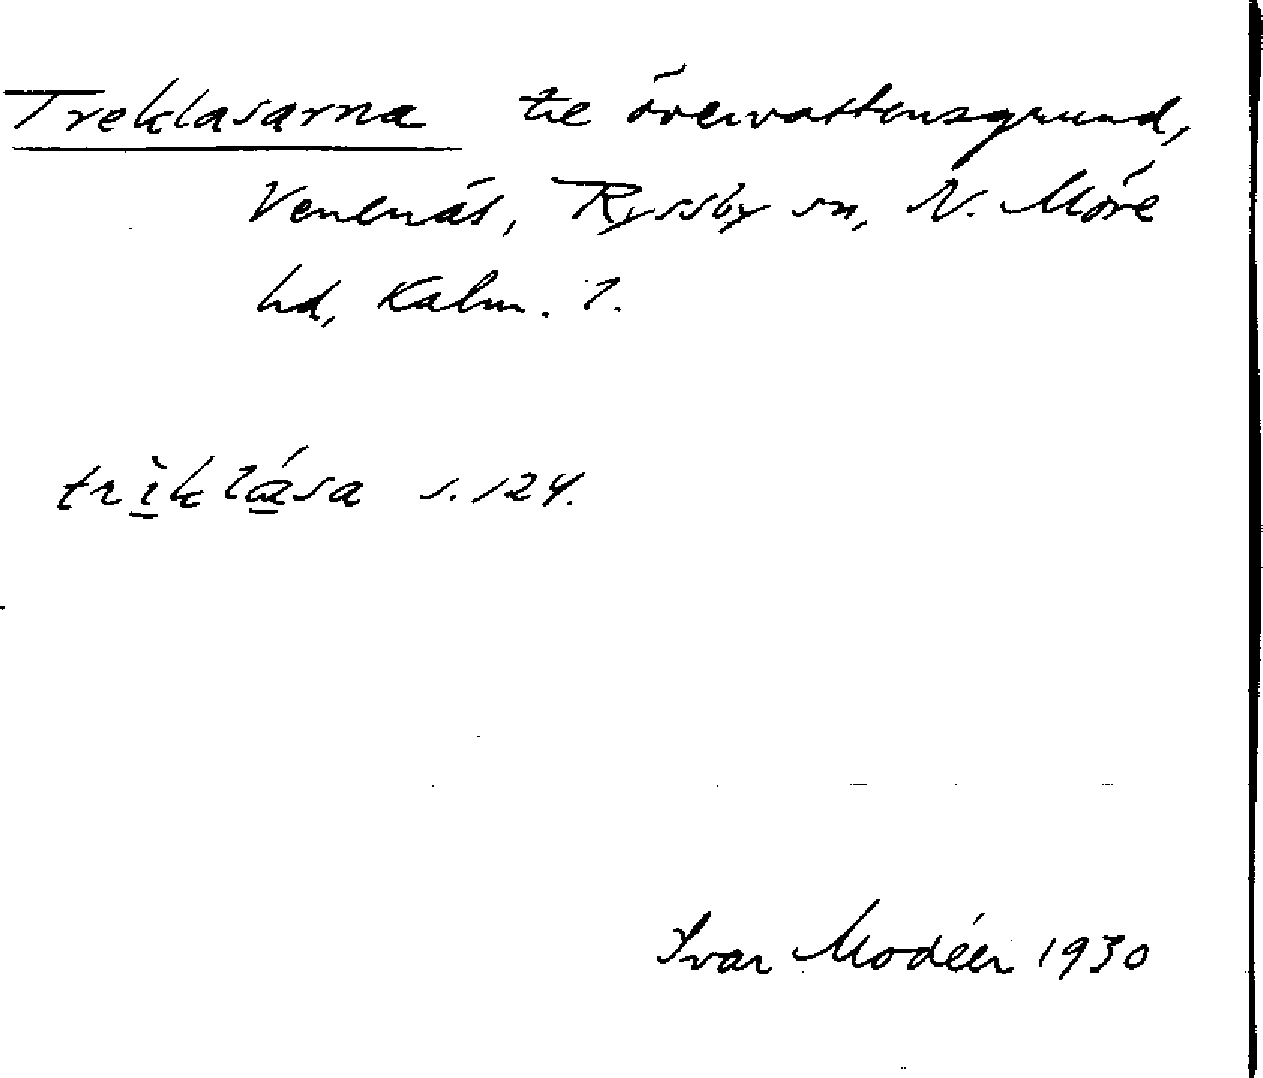 Treklasarna tre övervattensgrund,
Venenäs, Ryssby sn, N. Möre
hd, Kalm. l.
trìklása s. 124.
Ivar Modéer 1930